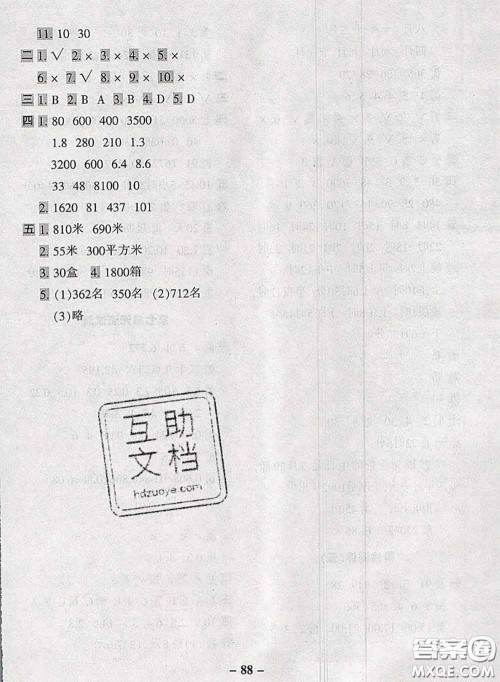 11. 10 30
二 1. √ 2. × 3. × 4. × 5. ×
6. × 7. × 8. × 9. × 10. ×
三 1. B 2. B A 3. B 4. D 5. D
四 1. 80 600 400 3500
1.8 280 210 1.3
3200 600 6.4 8.6
33 48 8100 10
2. 1620 81 437 101
五 1. 810米 690米
2. 55米 300平方米
3. 30盒 4. 1800箱
5. (1)362名 350名 (2)712名
(3)略
互助
文档
hdzuoye.com
- 88 -
答案圈
MXQE.COM